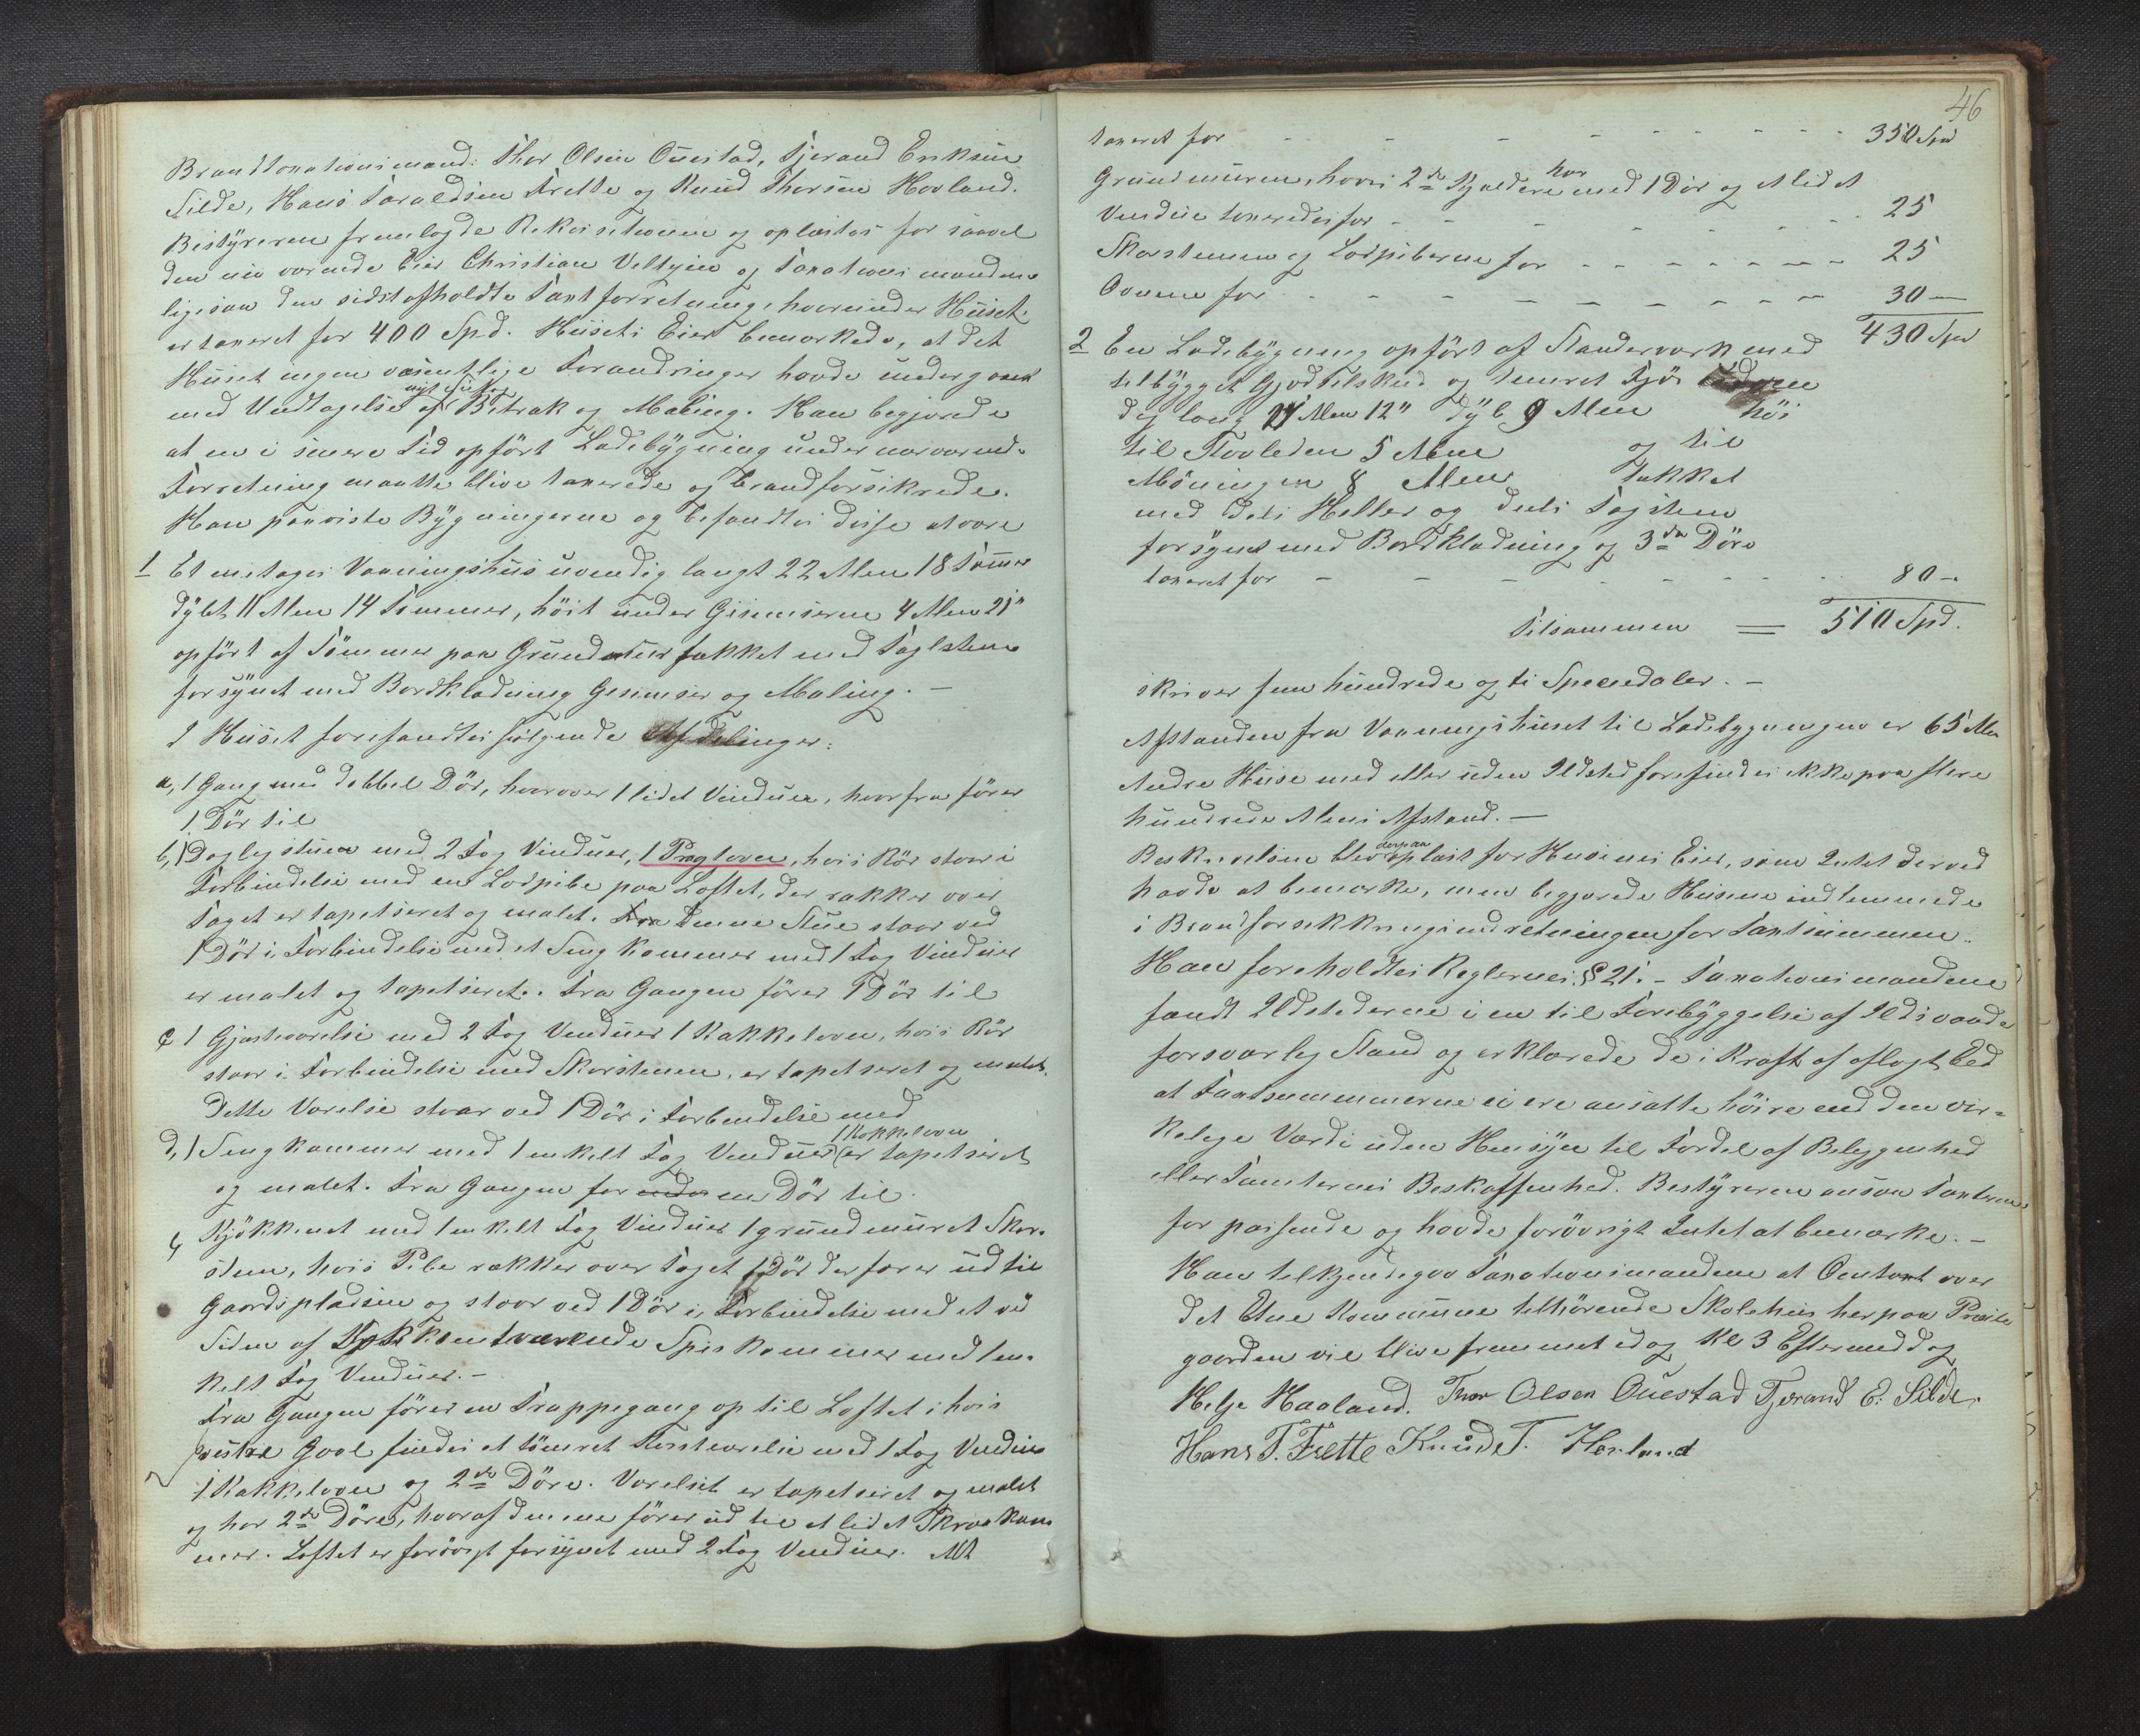 Brandtaxationsmænd: Thor Olsen Ouestad, Tjerand Eriksen
Silde, Hans Taraldsen Frette og Knud Thorsen Hovland.
Bestyreren fremlagde Rekvisitionen og oplæstes for saavel
den nu værende Eier Christian Veltzin og Taxationsmændene
ligesaa den sidst afholdte Taxtforretning, hvorunder Huset
er taxeret for 400 Spd. Husets Eier bemærkede, at det
Huset ingen væsentlige Forandringer havde undergaaet
med Undtagelse af nyt Betræk og Maling. Han begjærede
at en i senere Tid opført Ladebygning under nærværende
Forretning maatte blive taxerede og brandforsikrede.
Han paaviste Bygningerne og befandtes disse at være
1 Et enetages Vaaningshus uvendig langt 22 Alen 18 Tommer
dybt 11 Alen 14 Tommer, höit under Gesimserne 4 Alen 21"
opført af Tömmer paa Grundmur takket med Taglsten
forsynet med Bordklædning Gesimser og Maling. –
I Huset forefandtes følgende Afdelinger:
a, 1 Gang med dobbel Dör, hvorover 1 lidet Vindue, hvorfra förer
1 Dör til
b, 1 Dagligstue med 2 Fag Vinduer, 1 Pragtovn, hvis Rör staar i
Forbindelse med en Lodpibe paa Loftet, der rækker over
Taget er tapetseret og malet. Denne Stue staar ved
1 Dör i Forbindelse med et Sengkammer med 1 Fag Vinduer
er malet og tapetseret. Fra Gangen förer 1 Dör til
c 1 Gjesteværelse med 2 Fag Vinduer 1 Kakkelovn, hvis Rör
staar i Forbindelse med Skorstenen, er tapetseret og malet.
Dette Værelse staar ved 1 Dör i Forbindelse med
d, 1 Sengkammer med 1 enkelt Fag Vinduer 1 Kakkelovn er tapetseret
og malet. Fra Gangen før en Dör til
Kjökkenet med 1 enkelt Fag Vinduer 1 grundmuret Skor-
sten, hvis Pibe rækker over Taget 1 Dör der förer ud til
Gaardspladsen og staar ved 1 Dör i Forbindelse med et ved
Siden af Kjøkkenet værende Spiskammer med 1 en-
kelt Fag Vinduer. –
Fra Gangen förer en Trappegang op til Loftet i hvis
vestre Gavl findes et tömret Værelse med 1 Fag Vinduer
1 Kakkelovn og 2de Döre. Værelset er tapetseret og malet
og har 2de Döre, hvoraf denne förer ud til et lidet Skraakam
mer. Loftet er forövrigt forsynet med 2 Fag Vinduer. Alt
46
taxeret for – – – 350 Spd
Grundmuren, hvori 2de Kjældere har med 1 Dör og et lidet
Vindue taxeredes for – – – 25
Skorstenen og Lodpiberne for – – – 25
Ovnene for – – – 30 –
430 Spd
2 En Ladebygning opfört af Standerværk med
tilbygget Gjødselskud og tömret Fjös
dig lang 21 Alen 12" dyb 9 Alen höi
til Tovleden 5 Alen og til
Möningen 8 Alen Takket
med dels Heller og dels Tagsten
forsynet med Bordklædning og 3de Döre
taxeret for – – – 80 –
Tilsammen = 510 Spd.
skriver fem hundrede og ti Speciedaler. –
Afstanden fra Vaaningshuset til Ladebygningen er 65 Alen
Andre Huse med eller uden Ildsted forefindes ikke paa flere
hundrede Alens Afstand. –
Beskrivelsen blev derpaa oplæst for Husenes Eier, som Intet derved
havde at bemærke, men begjærede Husene indlemmede
i Brandforsikkringsindretningen for Taxtsummen.
Han foreholdtes Reglernes § 21. – Taxationsmændene
fandt Ildstederne i en til Forebyggelse af Ildsvaade
forsvarlig Stand og erklærede de i Kraft af aflagt Eed
at Taxtsummerne ei ere ansatte höire end den vir-
kelige Værdi uden Hensyn til Fordel af Beliggenhed
eller Tomternes Beskaffenhed. Bestyreren ansaa Taxterne
for passende og havde forövrigt Intet at bemærke. –
Han tilkjendegav Taxationsmændene at Omtaxt over
det Etne Kommune tilhörende Skolehus her paa Præste
gaarden vil blive fremmet idag Kl 3 Eftermiddag
Helje Haaland. Thor Olsen Ouestad Tjerand E. Silde.
Hans T. Frette Knud T. Hovland